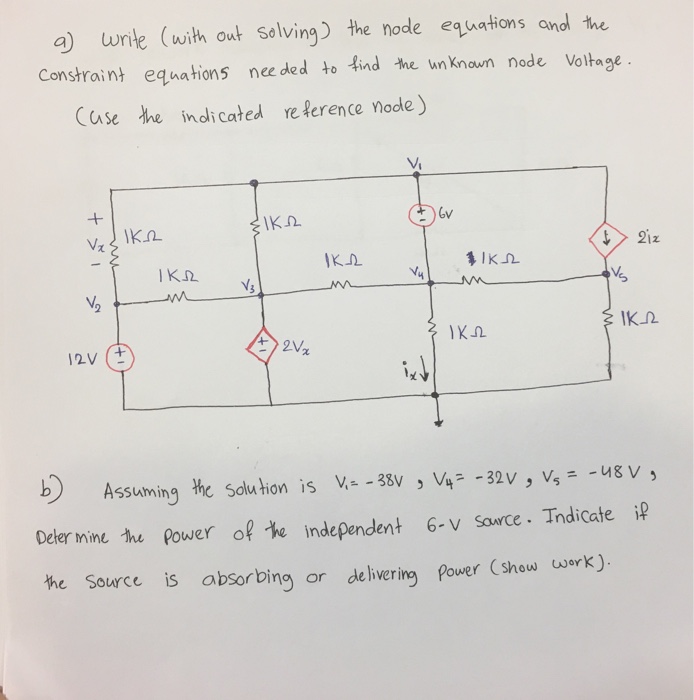 a) write (with out solving) the node equations and the
constraint equations needed to find the unknown node Voltage.
(use the indicated reference node)
V1
+
Vx
-
1KΩ
1KΩ
+
-
6V
2ix
1KΩ
1KΩ
1KΩ
V2
V3
V4
V5
12V
+
-
+
-
2Vx
ix
1KΩ
1KΩ
b) Assuming the solution is V1 = -38V , V4 = -32V , V5 = -48 V ,
Determine the power of the independent 6-V source. Indicate if
the source is absorbing or delivering power (show work).